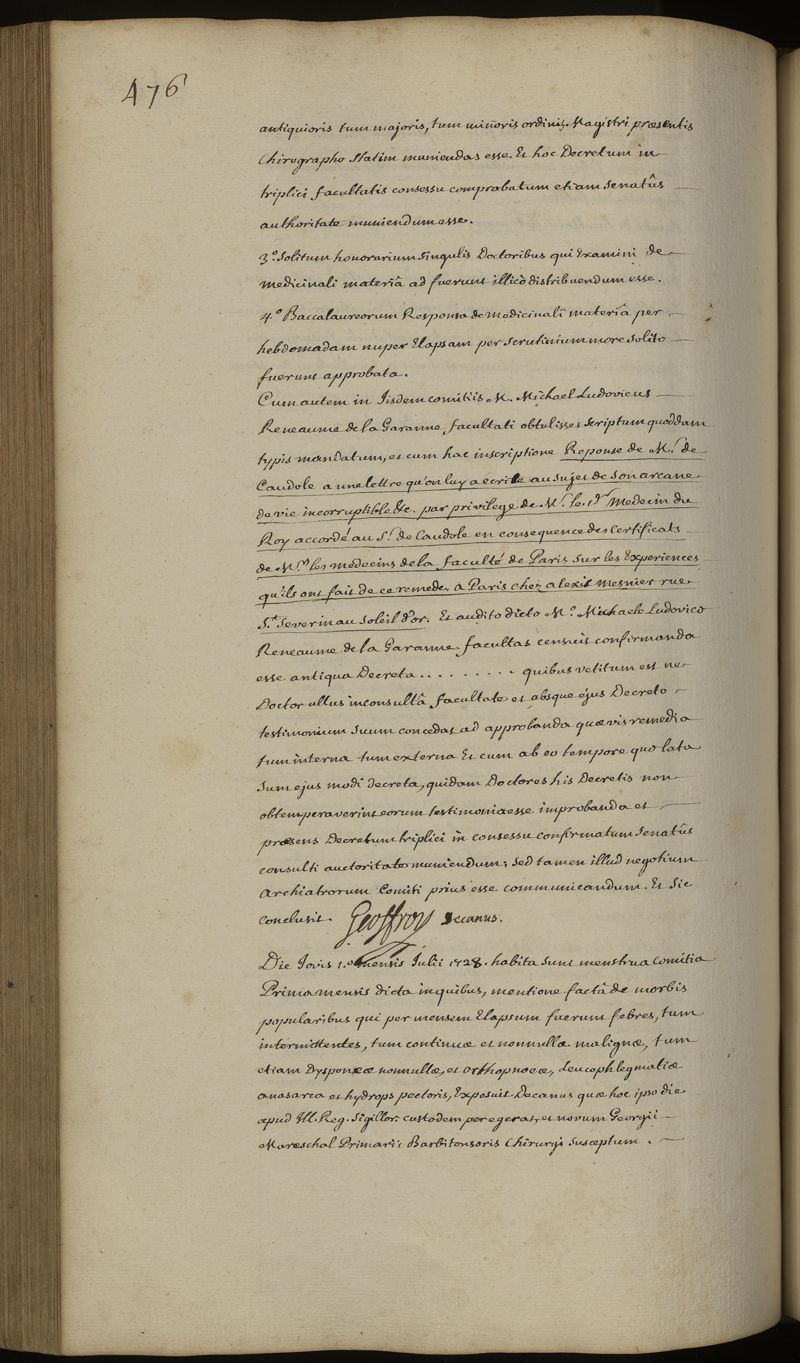 476
antiquioris tum majoris, tum minoris ordinis Magistri præsentis
Chirographo statim muniendas esse. Et hoc Decretum in
triplici facultatis consessu comprobatum etiam Senatûs
authoritate muniendum esse.
3.º Solitum honorarium singulis Doctoribus qui Examini de
medicinali materiâ adfuerunt illicò distribuendum esse.
4.º Baccalaureorum Responsa de medicinali materiâ per
hebdomadam nuper Elapsam per Scrutinium more solito
fuerunt approbata.
Cum autem in Iisdem comitiis M. Michael Ludovicus
Reneaume de la Garanne, facultati obtulisset scriptum quoddam
typis mandatum, et cum hac inscriptione Reponse de M.r de
Caudole a une lettre qu'on luy a écrite au sujet de son arcane
de vie incorruptible &c. par privilege de M.r le 1.er Medecin du
Roy accordé au S.r de Caudole en consequence des Certificats
de M.rs les medecins de la faculté de Paris sur les Experiences
qu'ils ont fait de ce remede. a Paris chez alexis mesnier rue
S.t Severin au Soleil d'or. Et audito dicto M.º Michaele Ludovico
Reneaume de la Garanne facultas censuit confirmanda
esse antiqua Decreta . . . . . . . . . quibus vetitum est ne
Doctor ullus inconsultâ facultate et absque ejus Decreto
testimonium suum concedat ad approbanda quævis remedia
tum interna tum externa Et cum ab eo tempore quo lata
sum ejus modi decreta, quidam Doctores his Decretis non
obtemperaverint eorum testimonia esse improbanda et
præsens Decretum triplici in consessu confirmatum Senatûs
consulti auctoritate muniendum; sed tamen illud negotium
Archiatrorum Comiti prius esse communicandum. Et Sic
Conclusit. Geoffroy Decanus.
Die Jovis 1.º mensis Julii 1728. habita sunt menstrua Comitia
Prima mensis dicta in quibus, mentione factâ de morbis
popularibus qui per mensem Elapsum fuerunt febres, tum
intermittentes, tum continuæ et nonnullæ malignæ, tum
etiam Dyspnææ nonnullæ, et orthopnoeæ, Leucophlegmatiæ
anasarca et hydrops pectoris, Exposuit Decanus quæ hoc ipso die
apud Ill. Reg. Sigillor. custodem peregerat, et novum Georgii
Mareschal Primarii Barbitonsoris Chirurgi susceptum .